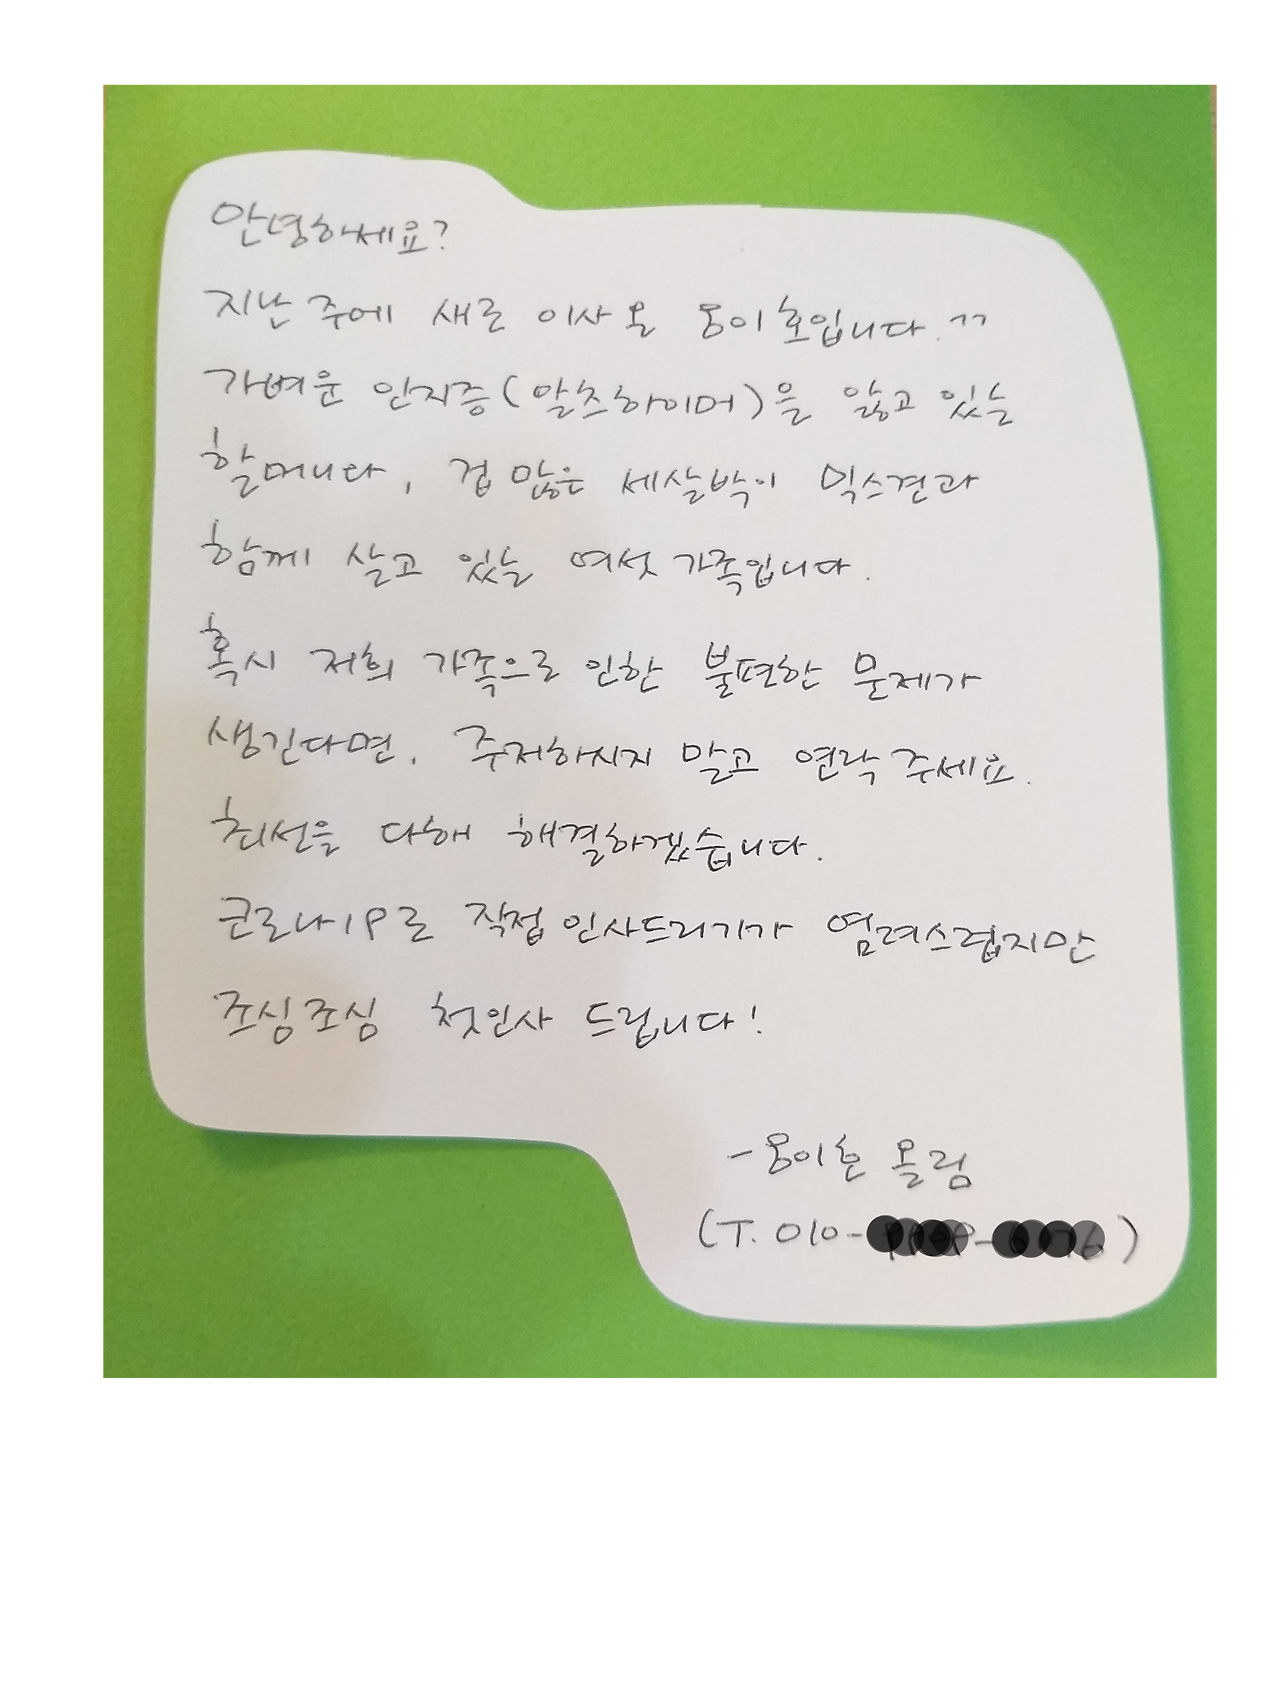 안녕하세요?
지난 주에 새로 이사 온 옹이호입니다.^^
가벼운 인지증(알츠하이머)을 앓고 있는
할머니다, 겁 많은 세살박이 믹스견과
함께 살고 있는 여섯 가족입니다.
혹시 저희 가족으로 인한 불편한 문제가
생긴다면, 주저하시지 말고 연락 주세요.
최선을 다해 해결하겠습니다.
코로나19로 직접 인사드리기가 염려스럽지만
조심조심 첫인사 드립니다!
-옹이호 올림
(T. 010-